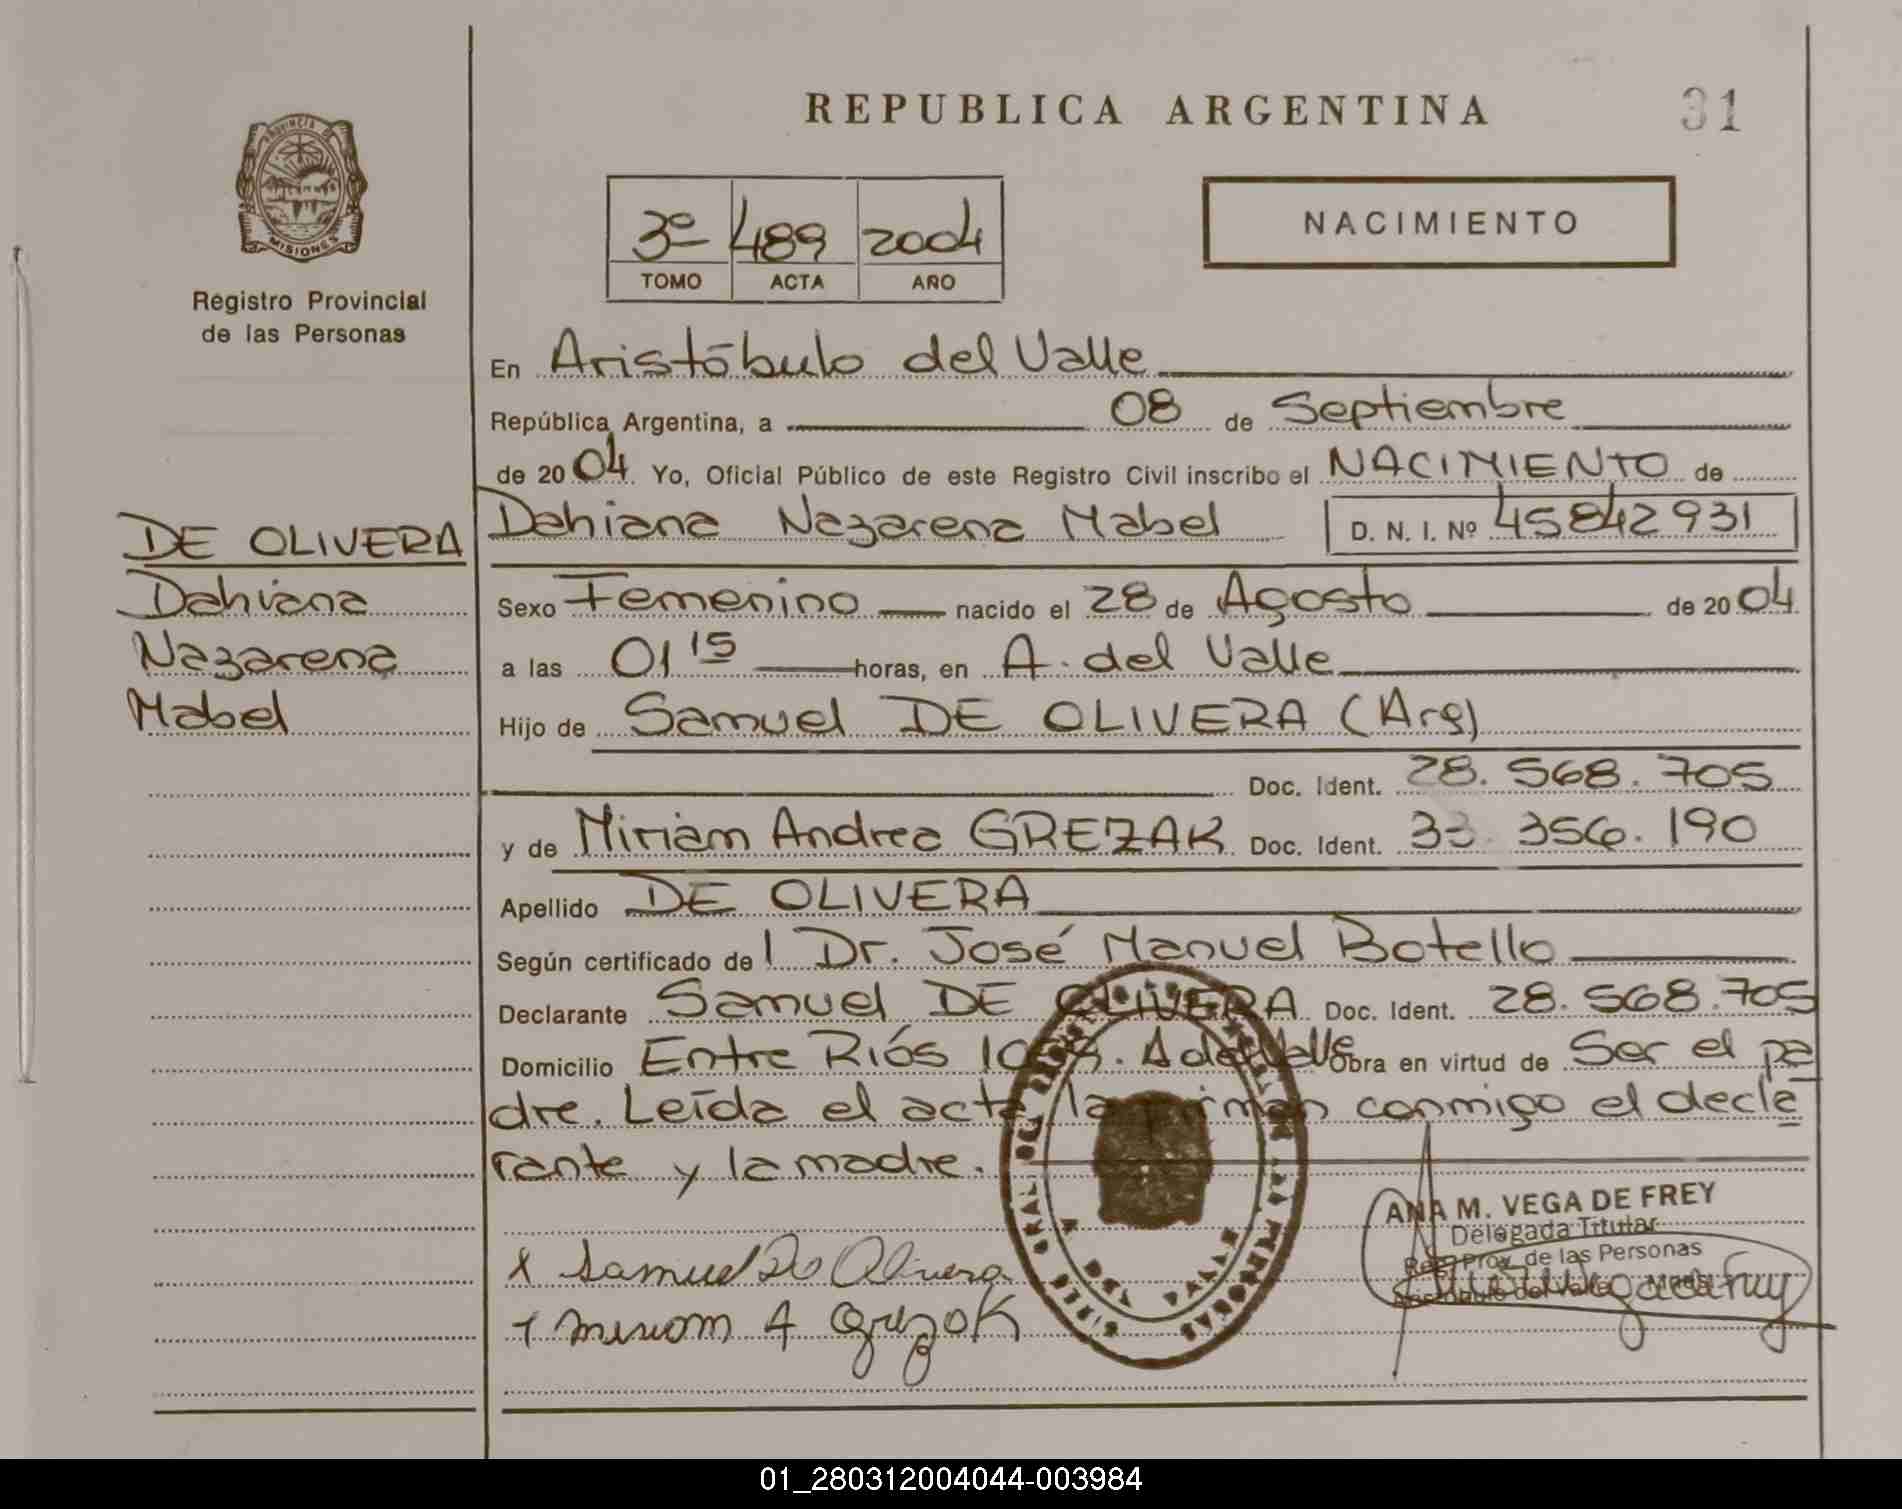 REPUBLICA ARGENTINA
31
PROVINCIA DE
MISIONES
Registro Provincial
de las Personas
3º 489 2004
TOMO ACTA AÑO
NACIMIENTO
En Aristóbulo del Valle
República Argentina, a 08 de Septiembre
de 2004 Yo, Oficial Público de este Registro Civil inscribo el NACIMIENTO de
Dahiana Nazarena Mabel D. N. I. Nº 45842931
DE OLIVERA
Dahiana
Nazarena
Mabel
Sexo Femenino nacido el 28 de Agosto de 2004
a las 01 15 horas, en A. del Valle
Hijo de Samuel DE OLIVERA (Arg)
Doc. Ident. 28.568.705
y de Miriam Andrea GREZAK Doc. Ident. 33.356.190
Apellido DE OLIVERA
Según certificado de l Dr. José Manuel Botello
Declarante Samuel DE OLIVERA Doc. Ident. 28.568.705
Domicilio Entre Ríos A del Valle Obra en virtud de Ser el pa
dre. Leída el acta la firman conmigo el decla
rante y la madre.
ANA M. VEGA DE FREY
Delegada Titular
Reg. Prov. de las Personas
Aristóbulo del Valle
x Samuel De Olivera
+ Miriam A Grezak
01_280312004044-003984